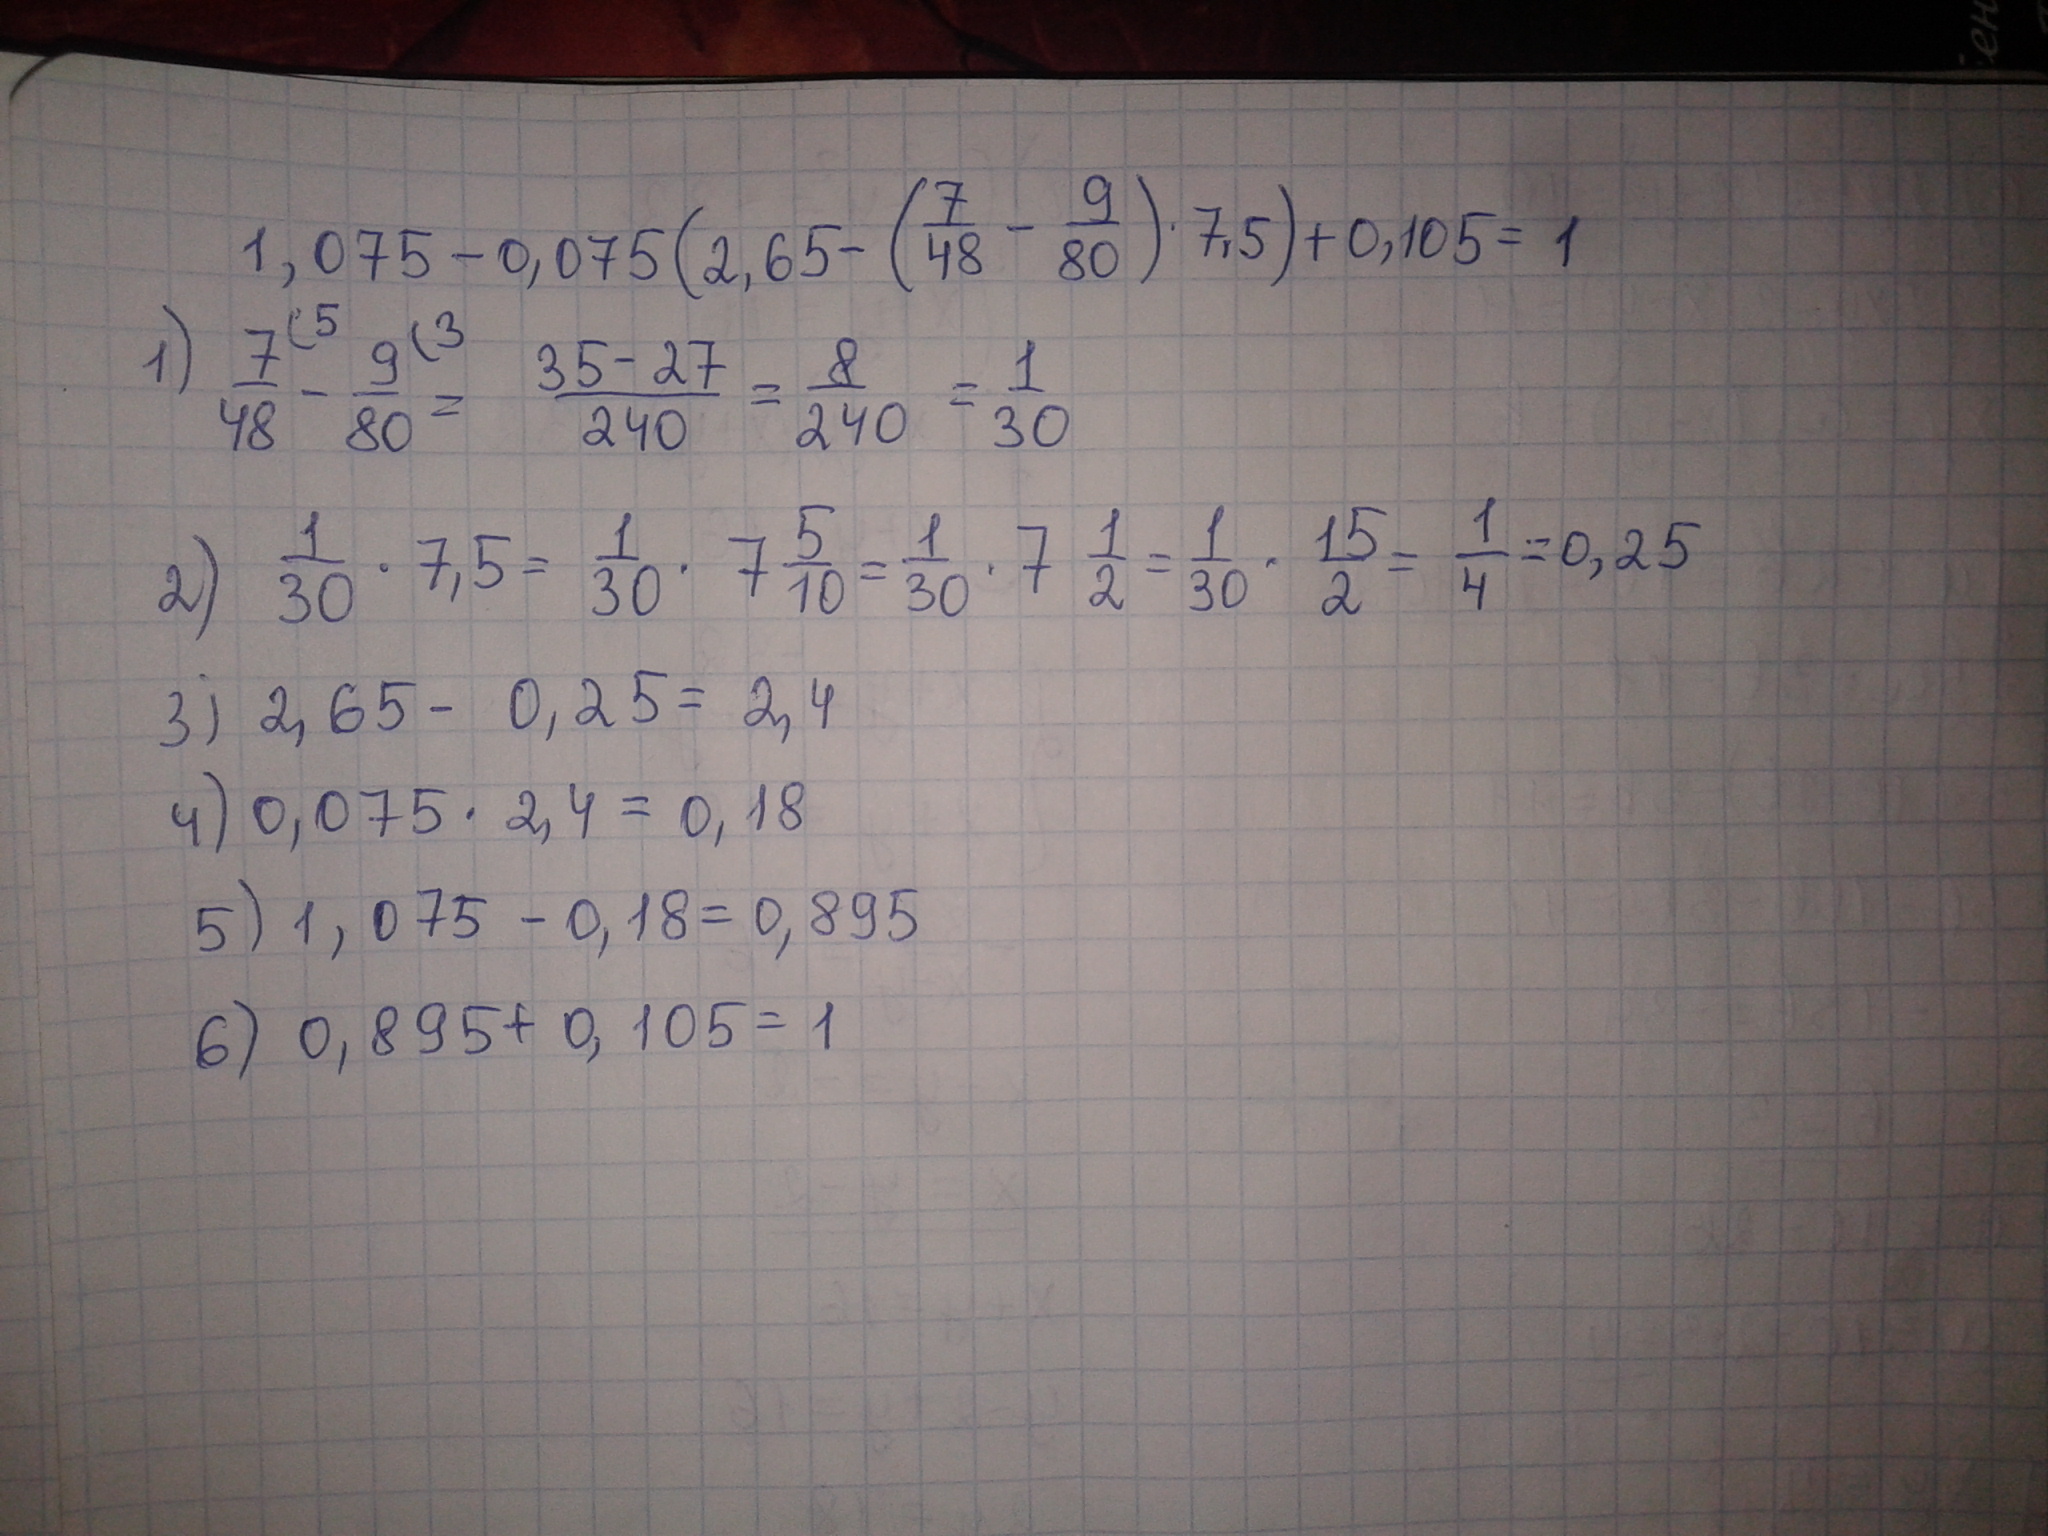 1,075 - 0,075(2,65 - (7/48 - 9/80) · 7,5) + 0,105 = 1
1) 7/48 (5 - 9/80 (3 = (35 - 27)/240 = 8/240 = 1/30
2) 1/30 · 7,5 = 1/30 · 7 5/10 = 1/30 · 7 1/2 = 1/30 · 15/2 = 1/4 = 0,25
3) 2,65 - 0,25 = 2,4
4) 0,075 · 2,4 = 0,18
5) 1,075 - 0,18 = 0,895
6) 0,895 + 0,105 = 1